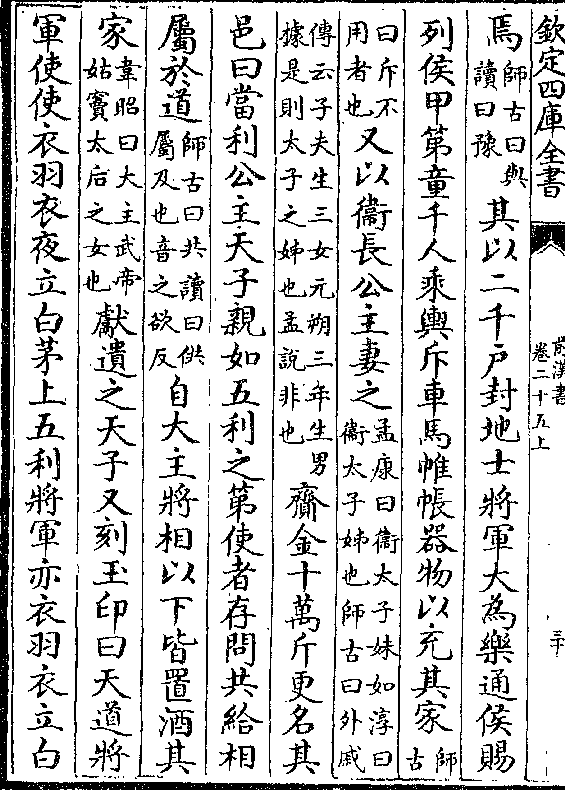 欽定四庫全書
前漢書
卷二十五上
三十
焉師古曰與讀曰豫其以二千戶封地士將軍大為樂通侯賜
列侯甲第童千人乘輿斥車馬帷帳器物以充其家師古
曰斥不用者也又以衞長公主妻之孟康曰衞太子妹如淳曰衞太子姊也師古曰外戚
傳云子夫生三女元朔三年生男據是則太子之姊也孟說非也齎金十萬斤更名其
邑曰當利公主天子親如五利之第使者存問共給相
屬於道師古曰共讀曰供屬及也音之欲反自大主將相以下皆置酒其
家韋昭曰大主武帝姑竇太后之女也獻遺之天子又刻玉印曰天道將
軍使使衣羽衣夜立白茅上五利將軍亦衣羽衣立白